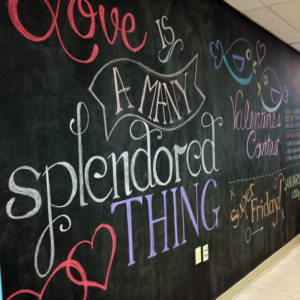 Love
IS
A MANY
splendored
THING
Valentine's
Contest
Super
Friday!